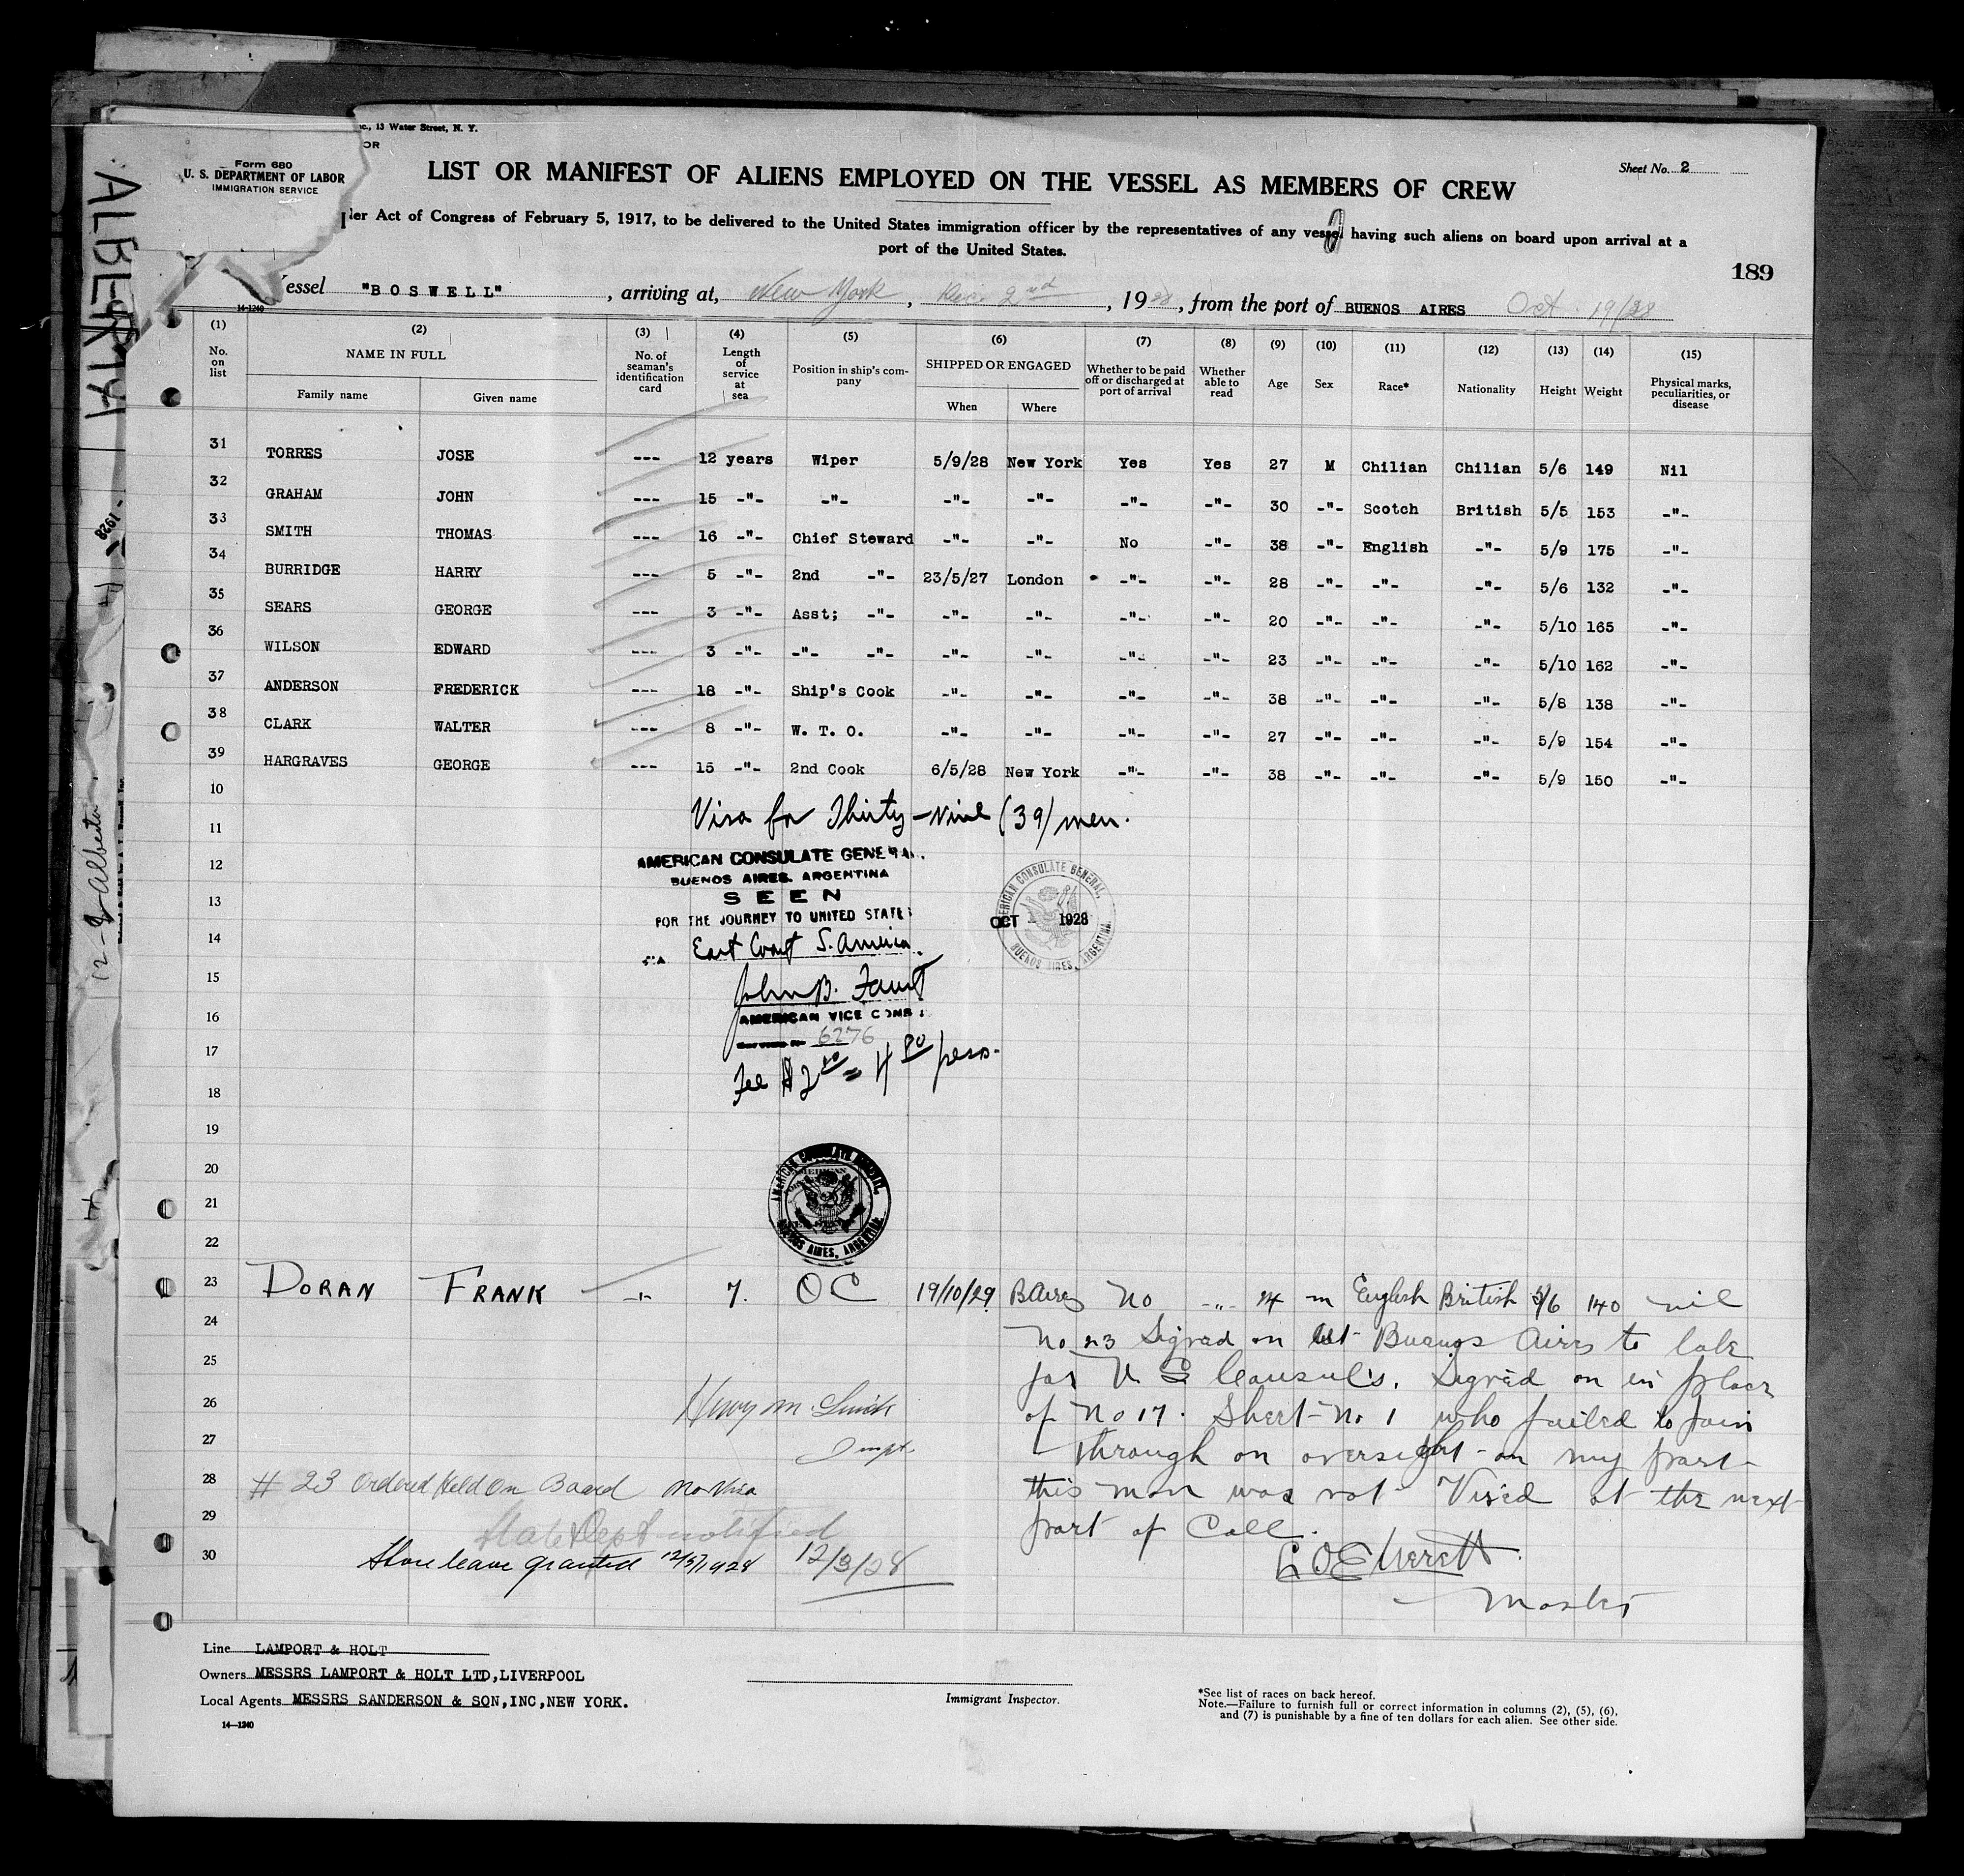 c., 13 Water Street, N. Y.
OR
Form 680
U. S. DEPARTMENT OF LABOR
IMMIGRATION SERVICE
Sheet No. 2
LIST OR MANIFEST OF ALIENS EMPLOYED ON THE VESSEL AS MEMBERS OF CREW
der Act of Congress of February 5, 1917, to be delivered to the United States immigration officer by the representatives of any vessel having such aliens on board upon arrival at a
port of the United States.
189
ALBERTA
1928
12-2-Alberta
Vessel "BOSWELL", arriving at, New York, Dec 2nd, 1928, from the port of BUENOS AIRES Oct. 19/28
14-1240
(1) (2) (3) (4) (5) (6) (7) (8) (9) (10) (11) (12) (13) (14) (15)
No. on list NAME IN FULL No. of seaman's identification card Length of service at sea Position in ship's company SHIPPED OR ENGAGED Whether to be paid off or discharged at port of arrival Whether able to read Age Sex Race* Nationality Height Weight Physical marks, peculiarities, or disease
Family name Given name When Where
31 TORRES JOSE --- 12 years Wiper 5/9/28 New York Yes Yes 27 M Chilian Chilian 5/6 149 Nil
32 GRAHAM JOHN --- 15 -"- -"- -"- -"- -"- -"- 30 -"- Scotch British 5/5 153 -"-
33 SMITH THOMAS --- 16 -"- Chief Steward -"- -"- No -"- 38 -"- English -"- 5/9 175 -"-
34 BURRIDGE HARRY --- 5 -"- 2nd -"- 23/5/27 London -"- -"- 28 -"- -"- -"- 5/6 132 -"-
35 SEARS GEORGE --- 3 -"- Asst; -"- -"- -"- -"- -"- 20 -"- -"- -"- 5/10 165 -"-
36 WILSON EDWARD --- 3 -"- -"- -"- -"- -"- -"- -"- 23 -"- -"- -"- 5/10 162 -"-
37 ANDERSON FREDERICK --- 18 -"- Ship's Cook -"- -"- -"- -"- 38 -"- -"- -"- 5/8 138 -"-
38 CLARK WALTER --- 8 -"- W. T. O. -"- -"- -"- -"- 27 -"- -"- -"- 5/9 154 -"-
39 HARGRAVES GEORGE --- 15 -"- 2nd Cook 6/5/28 New York -"- -"- 38 -"- -"- -"- 5/9 150 -"-
10
Visa for Thirty-Nine (39) men.
11
12
AMERICAN CONSULATE GENERAL
BUENOS AIRES, ARGENTINA
13
SEEN
FOR THE JOURNEY TO UNITED STATES
AMERICAN CONSULATE GENERAL, BUENOS AIRES, ARGENTINA
OCT 1928
14
VIA East Coast S. America.
15
John B. Faust
16
AMERICAN VICE CONS
6276
17
Fee $2 00 = 4 80 pesos.
18
19
20
AMERICAN CONSULATE GENERAL, BUENOS AIRES, ARGENTINA
21
22
23 DORAN FRANK -"- 7. OC 19/10/29 BAires No -"- 24 m English British 5/6 140 nil
24
No 23 Signed on at Buenos Aires to late
25
for U S Consul's. Signed on in place
26
of No 17. Sheet No 1 who failed to join
Henry M. Smith
Inspt.
27
through an oversight on my part
28
# 23 Ordered Held On Board No Visa
this man was not Vised at the next
29
State Dept notified
12/3/28
port of Call.
30
Shore leave granted 12/5/1928
Everett
Master
Line LAMPORT & HOLT
Owners MESSRS LAMPORT & HOLT LTD, LIVERPOOL
Local Agents MESSRS SANDERSON & SON, INC, NEW YORK.
14—1240
Immigrant Inspector.
*See list of races on back hereof.
Note.—Failure to furnish full or correct information in columns (2), (5), (6),
and (7) is punishable by a fine of ten dollars for each alien. See other side.